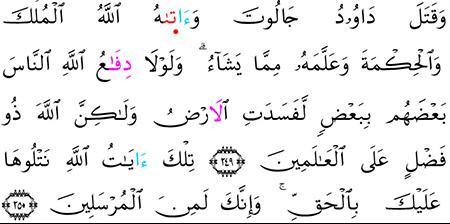 وَقَتَلَ دَاوُۥدُ جَالُوتَ وَءَاتَىٰهُ ٱللَّهُ ٱلْمُلْكَ
وَٱلْحِكْمَةَ وَعَلَّمَهُۥ مِمَّا يَشَآءُ ۗ وَلَوْلَا دِفَٰعُ ٱللَّهِ ٱلنَّاسَ
بَعْضَهُم بِبَعْضٍ لَّفَسَدَتِ ٱلَارْضُ وَلَٰكِنَّ ٱللَّهَ ذُو
فَضْلٍ عَلَى ٱلْعَٰلَمِينَ ٢٤٩ تِلْكَ ءَايَٰتُ ٱللَّهِ نَتْلُوهَا
عَلَيْكَ بِٱلْحَقِّ ۚ وَإِنَّكَ لَمِنَ ٱلْمُرْسَلِينَ ٢٥٠